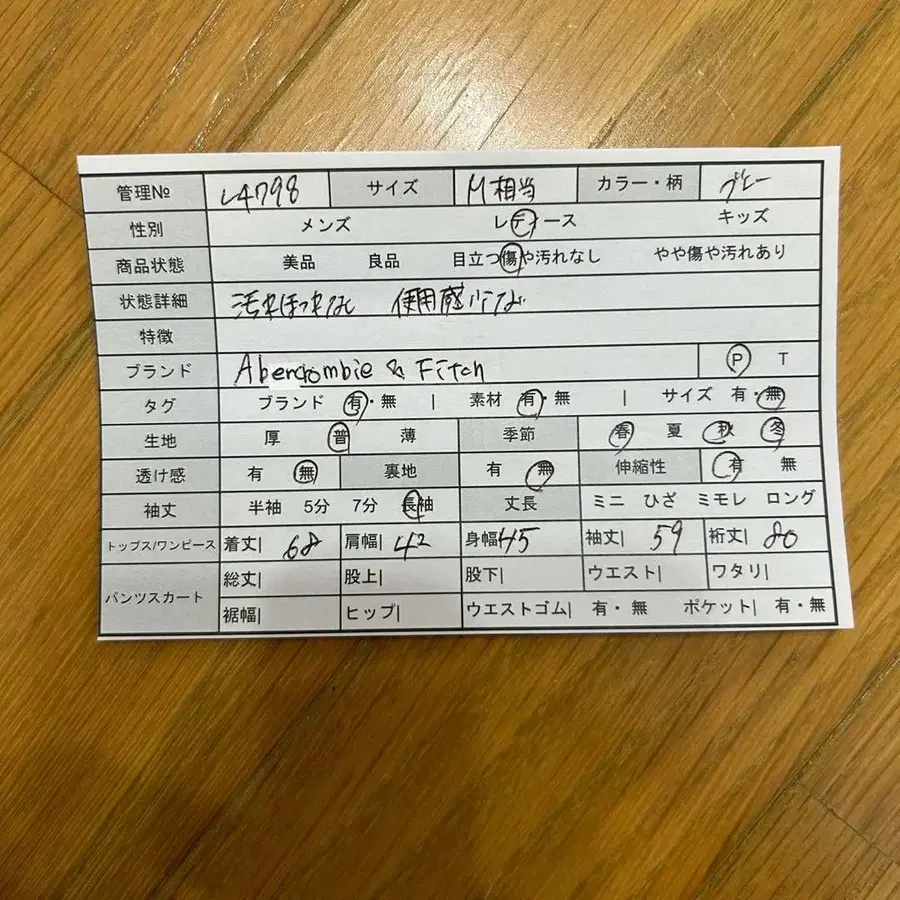 管理№ L4798 サイズ M相当 カラー・柄 グレー
性別 メンズ レディース キッズ
商品状態 美品 良品 目立つ傷や汚れなし やや傷や汚れあり
状態詳細 汚れほつれなし 使用感少なめ
特徴
ブランド Abercrombie & Fitch P T
タグ ブランド 有・無 | 素材 有・無 | サイズ 有・無
生地 厚 普 薄 季節 春 夏 秋 冬
透け感 有 無 裏地 有 無 伸縮性 有 無
袖丈 半袖 5分 7分 長袖 丈長 ミニ ひざ ミモレ ロング
トップス/ワンピース 着丈| 68 肩幅| 42 身幅 45 袖丈| 59 裄丈| 80
パンツスカート 総丈| 股上| 股下| ウエスト| ワタリ|
裾幅| ヒップ| ウエストゴム| 有・無 ポケット| 有・無